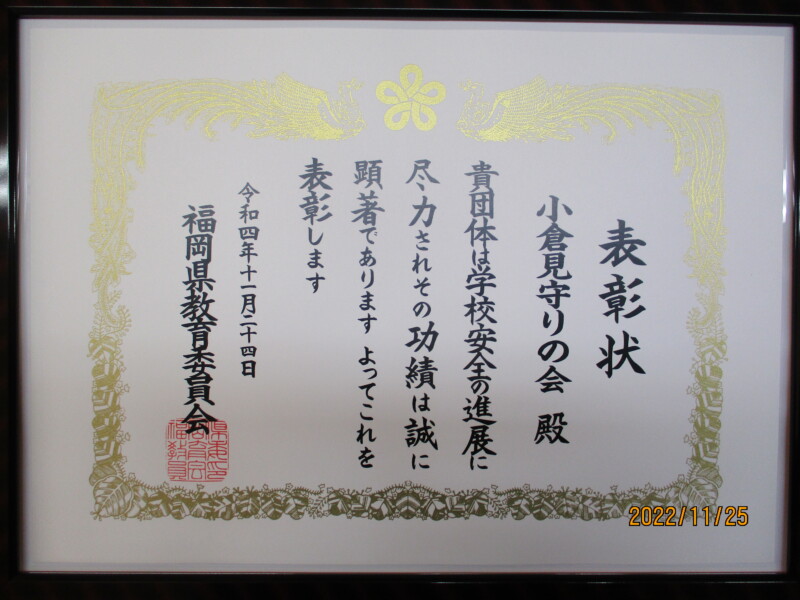 表彰状
小倉見守りの会 殿
貴団体は学校安全の進展に
尽力されその功績は誠に
顕著であります よってこれを
表彰します
令和四年十一月二十四日
福岡県教育委員会
2022/11/25